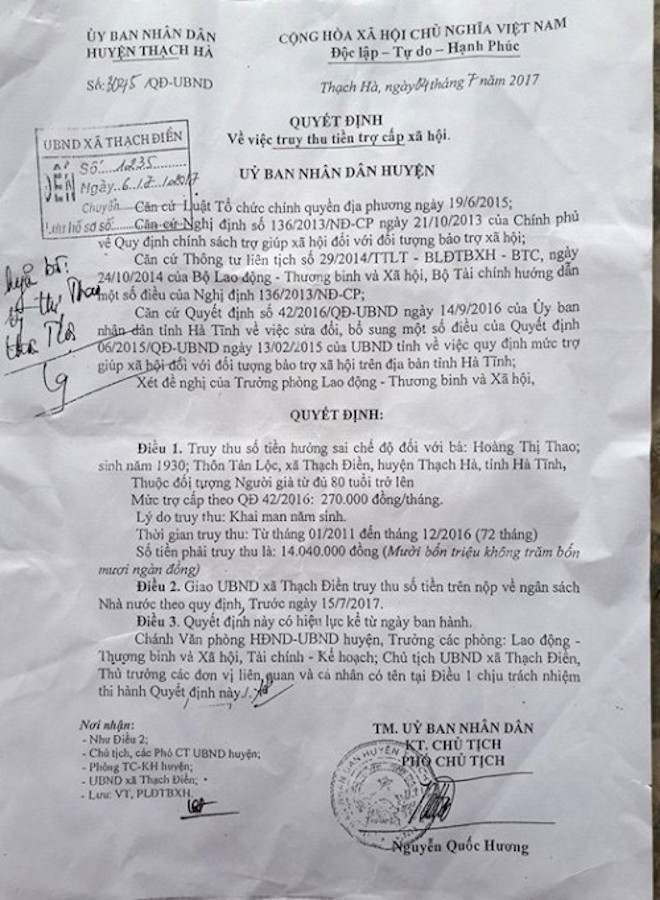 ỦY BAN NHÂN DÂN
HUYỆN THẠCH HÀ
CỘNG HÒA XÃ HỘI CHỦ NGHĨA VIỆT NAM
Độc lập – Tự do – Hạnh Phúc
Số: 3045 /QĐ-UBND
Thạch Hà, ngày 04 tháng 7 năm 2017
QUYẾT ĐỊNH
Về việc truy thu tiền trợ cấp xã hội.
UBND XÃ THẠCH ĐIỀN
ĐẾN
Số: 1235
Ngày 6/7/2017
Chuyển
Lưu hồ sơ số
UỶ BAN NHÂN DÂN HUYỆN
Căn cứ Luật Tổ chức chính quyền địa phương ngày 19/6/2015;
Căn cứ Nghị định số 136/2013/NĐ-CP ngày 21/10/2013 của Chính phủ
về Quy định chính sách trợ giúp xã hội đối với đối tượng bảo trợ xã hội;
Căn cứ Thông tư liên tịch số 29/2014/TTLT - BLĐTBXH - BTC, ngày
24/10/2014 của Bộ Lao động - Thương binh và Xã hội, Bộ Tài chính hướng dẫn
một số điều của Nghị định 136/2013/NĐ-CP;
Căn cứ Quyết định số 42/2016/QĐ-UBND ngày 14/9/2016 của Ủy ban
nhân dân tỉnh Hà Tĩnh về việc sửa đổi, bổ sung một số điều của Quyết định
06/2015/QĐ-UBND ngày 13/02/2015 của UBND tỉnh về việc quy định mức trợ
giúp xã hội đối với đối tượng bảo trợ xã hội trên địa bàn tỉnh Hà Tĩnh;
Xét đề nghị của Trưởng phòng Lao động - Thương binh và Xã hội,
QUYẾT ĐỊNH:
Điều 1. Truy thu số tiền hưởng sai chế độ đối với bà: Hoàng Thị Thao;
sinh năm 1930; Thôn Tân Lộc, xã Thạch Điền, huyện Thạch Hà, tỉnh Hà Tĩnh,
Thuộc đối tượng Người già từ đủ 80 tuổi trở lên
Mức trợ cấp theo QĐ 42/2016: 270.000 đồng/tháng.
Lý do truy thu: Khai man năm sinh.
Thời gian truy thu: Từ tháng 01/2011 đến tháng 12/2016 (72 tháng)
Số tiền phải truy thu là: 14.040.000 đồng (Mười bốn triệu không trăm bốn
mươi ngàn đồng)
Điều 2. Giao UBND xã Thạch Điền truy thu số tiền trên nộp về ngân sách
Nhà nước theo quy định, Trước ngày 15/7/2017.
Điều 3. Quyết định này có hiệu lực kể từ ngày ban hành.
Chánh Văn phòng HĐND-UBND huyện, Trưởng các phòng: Lao động -
Thương binh và Xã hội, Tài chính - Kế hoạch; Chủ tịch UBND xã Thạch Điền,
Thủ trưởng các đơn vị liên quan và cá nhân có tên tại Điều 1 chịu trách nhiệm
thi hành Quyết định này./.
Nơi nhận:
- Như Điều 2;
- Chủ tịch, các Phó CT UBND huyện;
- Phòng TC-KH huyện;
- UBND xã Thạch Điền;
- Lưu: VT, PLĐTBXH.
TM. UỶ BAN NHÂN DÂN
KT. CHỦ TỊCH
PHÓ CHỦ TỊCH
Nguyễn Quốc Hương